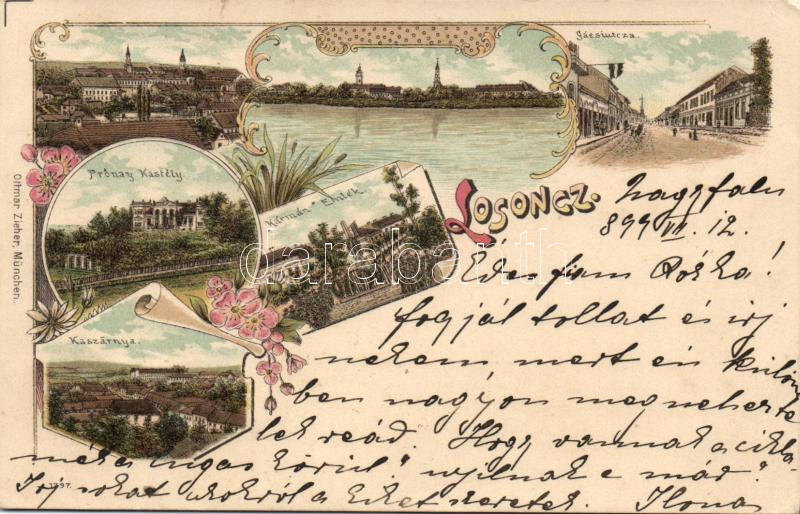 Gácsiutcza.
Prónay Kastély
Kármán Emlék
Losoncz.
Kaszárnya.
Ottmar Zieher, München.
1397.
darabanth
Nagyfalu
899 VII. 12.
Édes fiam Rózka!
fogjál tollat és irj
nekem, mert én külön
ben nagyon megnehezte
lek reád. Hogy vannak a cikla
mék a lugas körül "nyilnak e mád".
Irj sokat azokról a kiket szeretek. Ilona